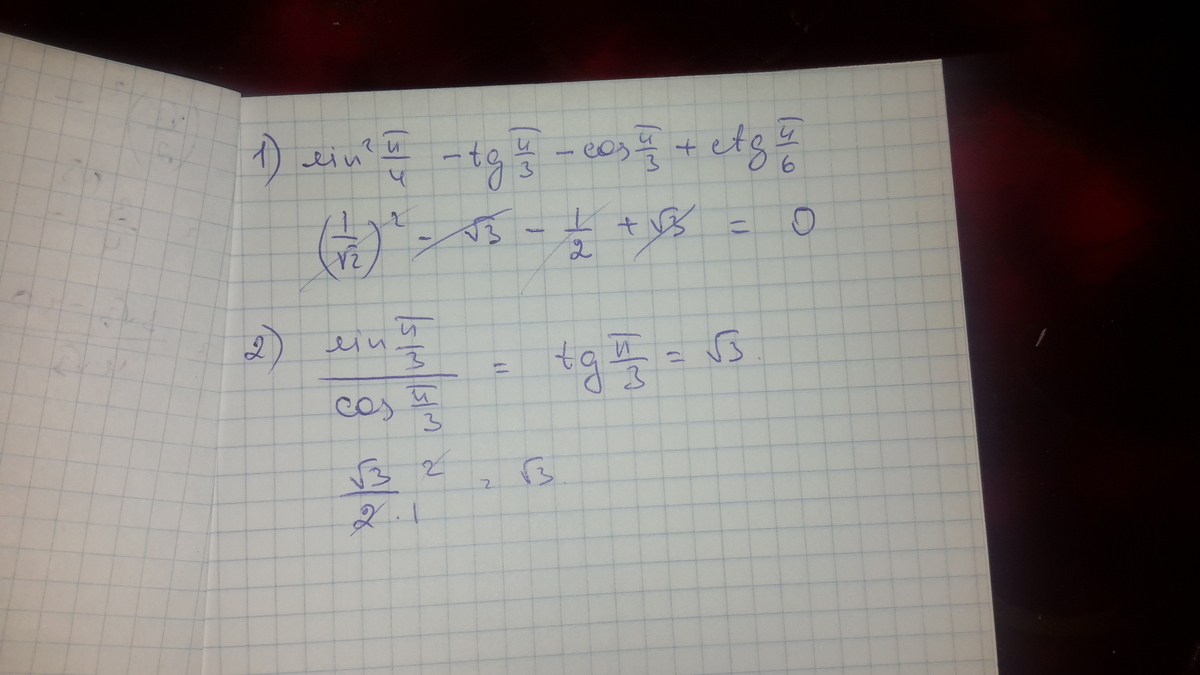 1) sin² π/4 - tg π/3 - cos π/3 + ctg π/6
(1/√2)² - √3 - 1/2 + √3 = 0
2) sin π/3 / cos π/3 = tg π/3 = √3.
√3 2 / 2 · 1 = √3.